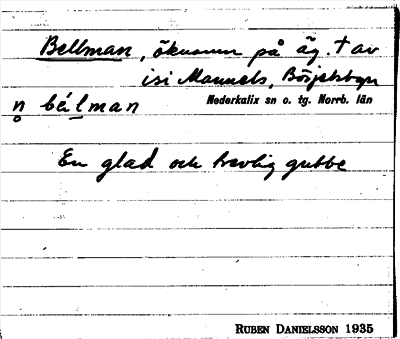 Bellman, öknamn på äg. † av
isi Manuels, Börjelsbyn
Nederkalix sn o. tg. Norrb. län
n bélman
En glad och trevlig gubbe
RUBEN DANIELSSON 1935